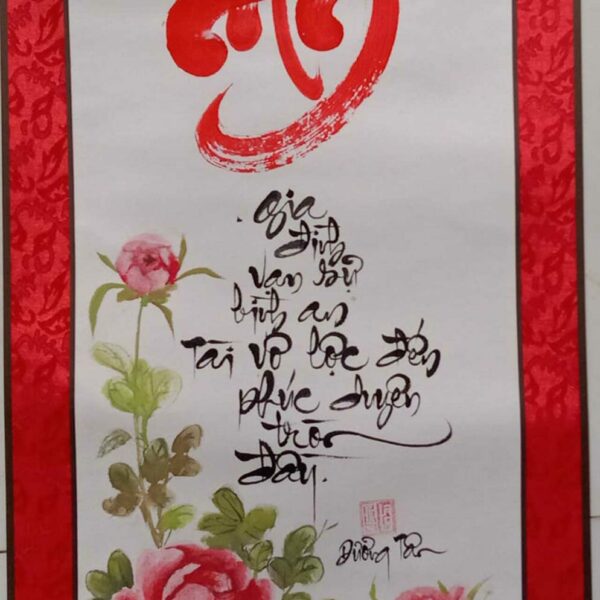 Gia
đình
vạn sự
bình an
Tài vô lộc đến
phúc duyên
tròn
đầy.
Đường Tân